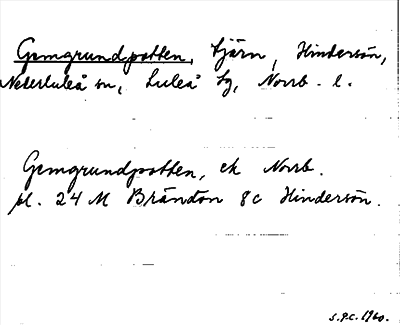 Gemgrundpotten, tjärn, Hindersön,
Nederluleå sn, Luleå tg, Norrb. l.
Gemgrundpotten, ek Norrb.
pl. 24 M Brändön 8c Hindersön.
S.P.C. 1960.